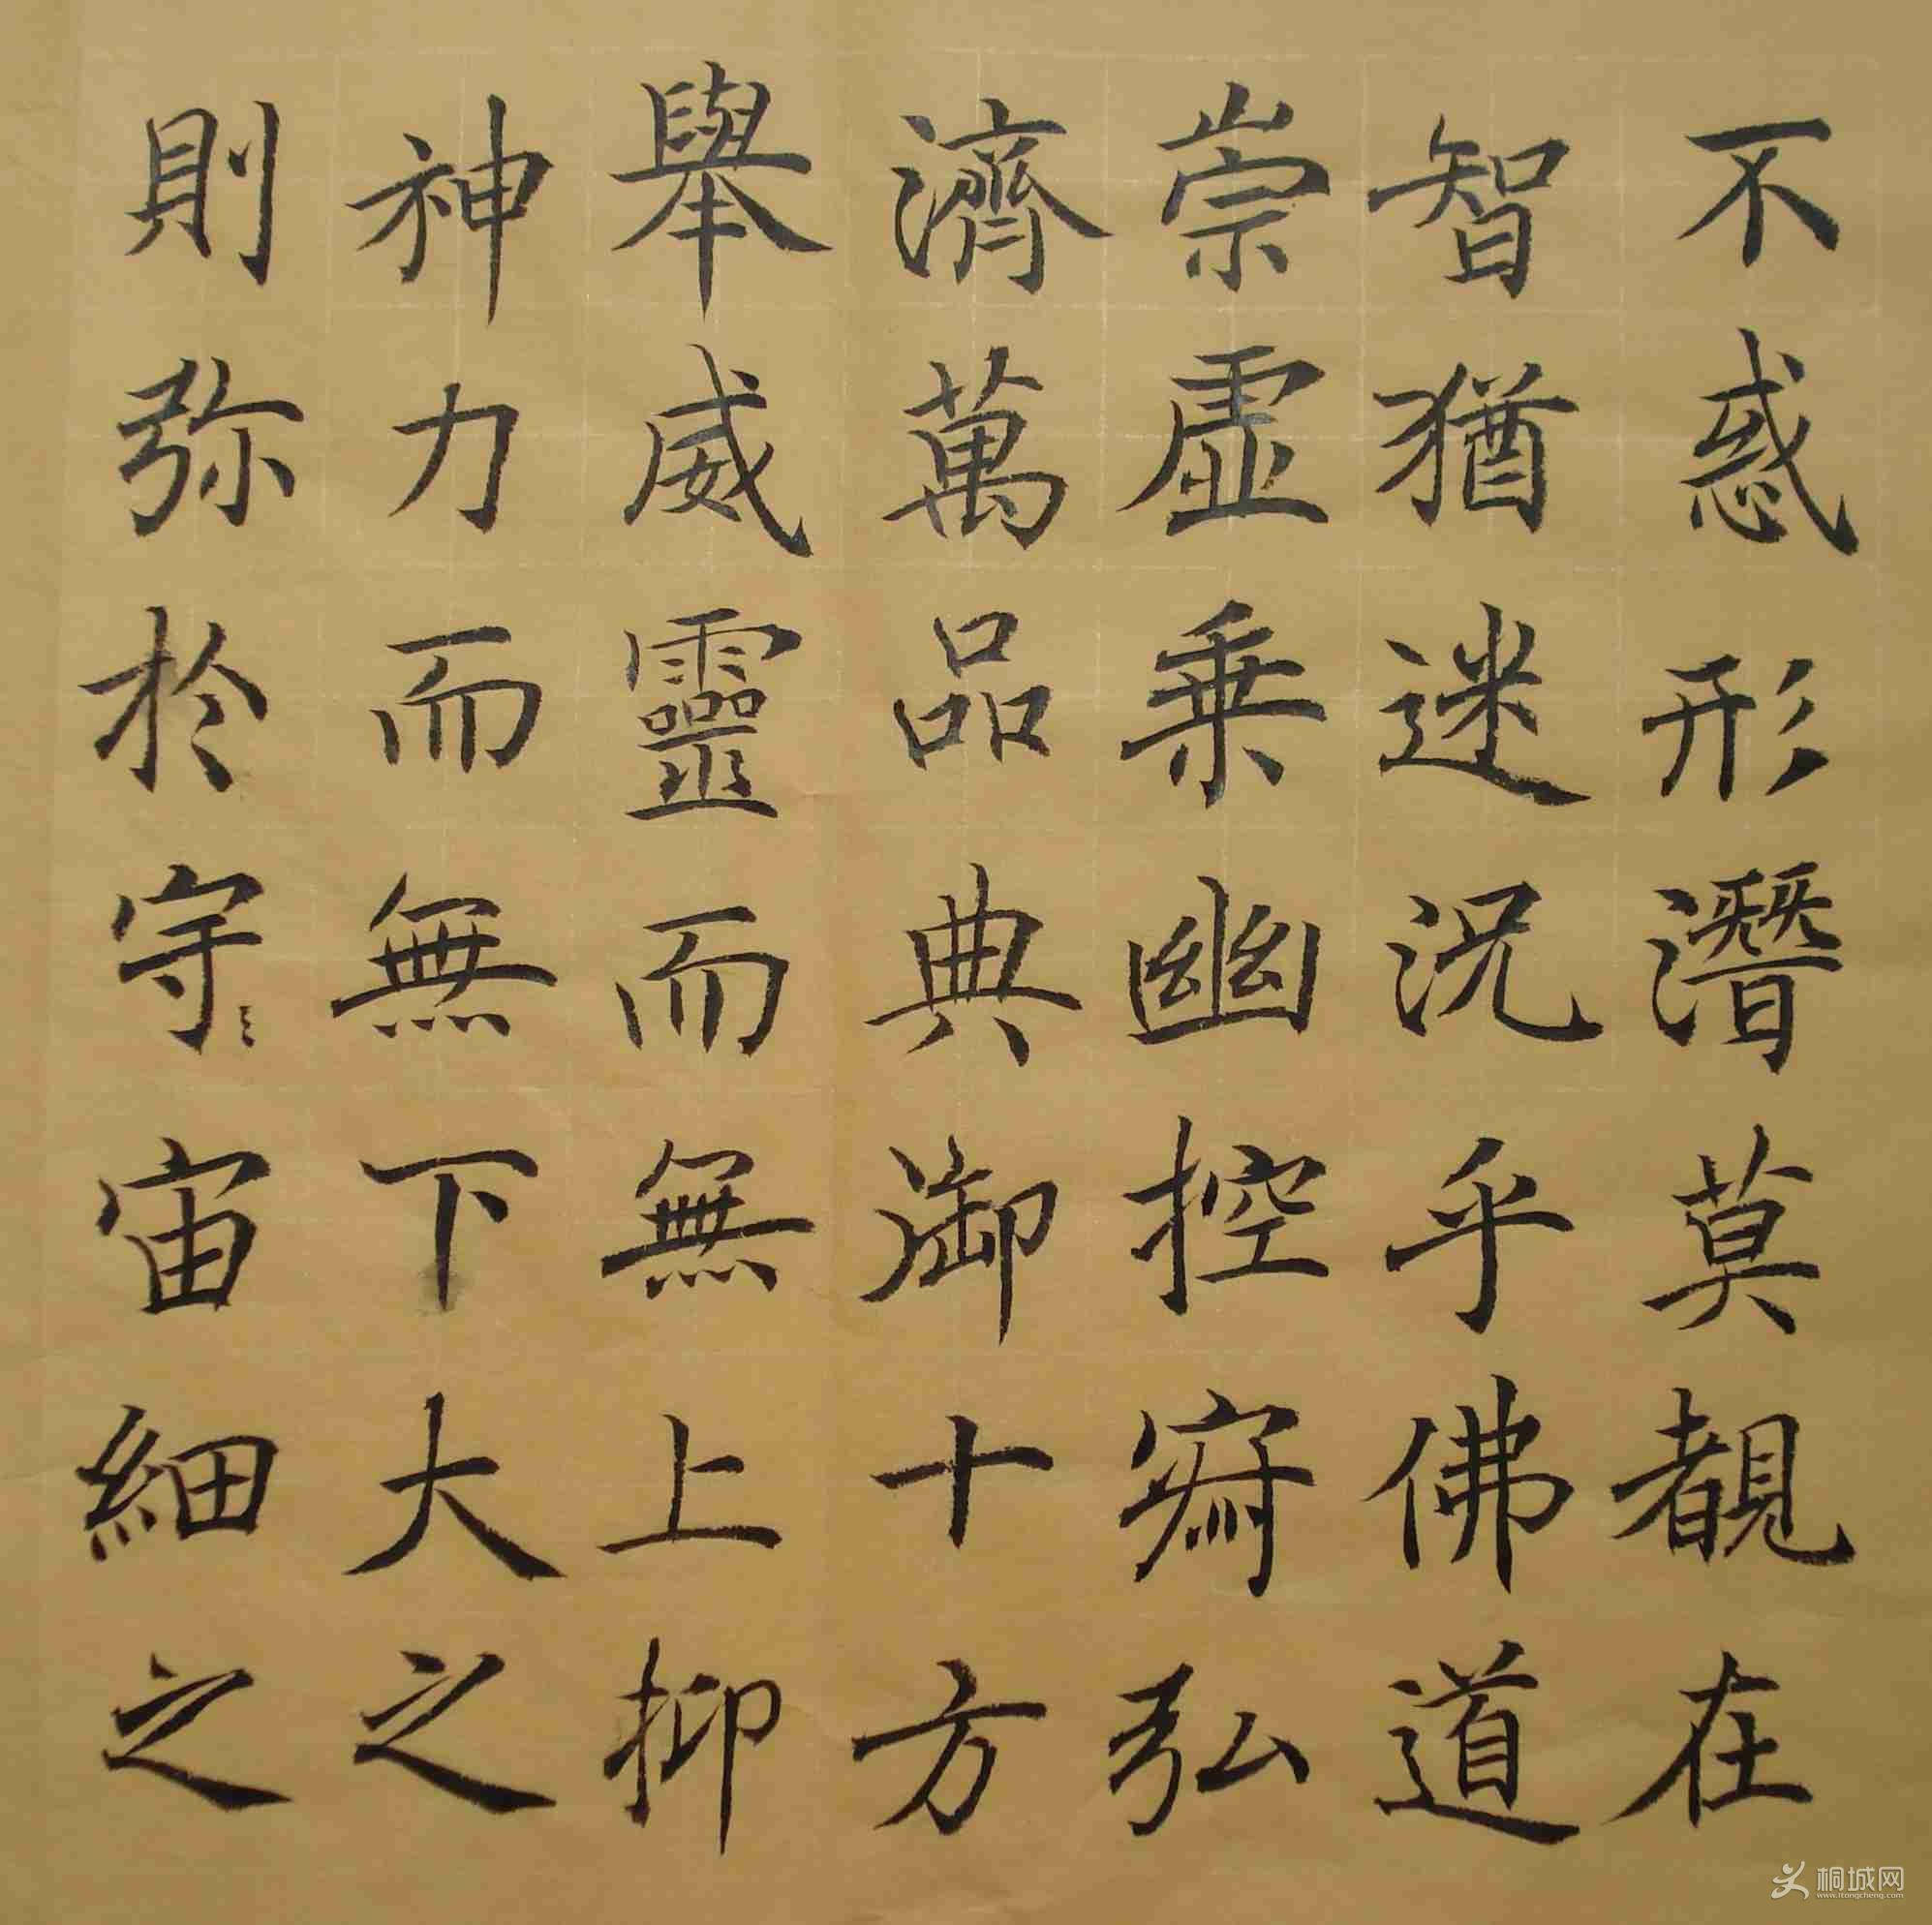 不惑形潛莫覩在
智猶迷況乎佛道
崇虛乗幽控寂弘
濟萬品典御十方
舉威靈而無上抑
神力而無下大之
則弥於宇宙細之
桐城网
www.itongcheng.com